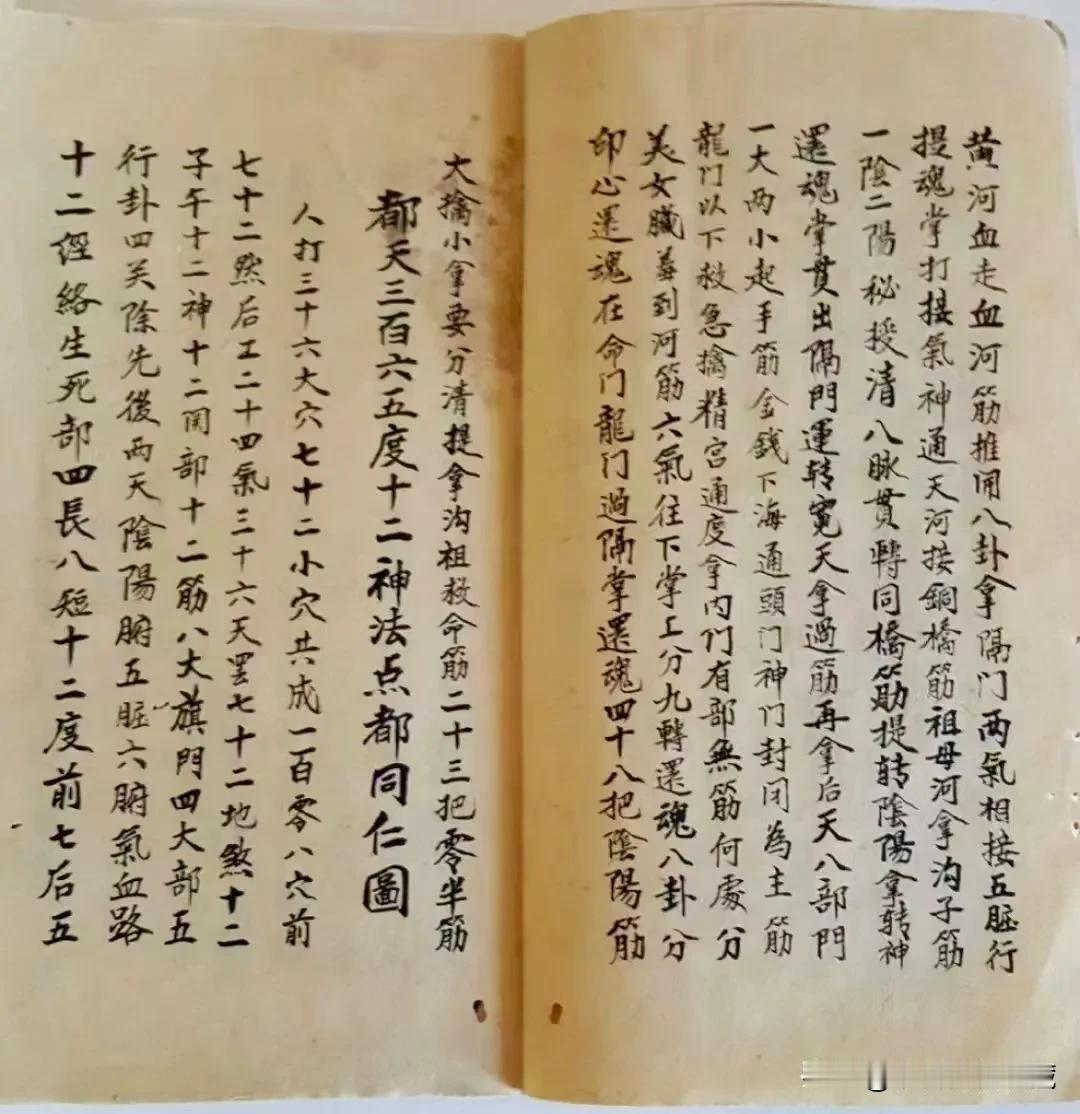 黄河血走血河筋推闹八卦拿隔门两氣相接五脏行
提魂掌打接氣神通天河接銅橋筋祖母河拿沟子筋
一陰二陽秘授清八脉贯轉同橋筋提转陰陽拿转神
還魂掌贯出隔門運转寬天拿過筋再拿后天八部門
一大两小起手筋金錢下海通頭门神门封闭為主筋
龍门以下救急擒精宫通度拿内门有部無筋何處分
美女臟羞到河筋六氣往下掌上分九轉還魂八卦分
印心還魂在命门龍门過隔掌還魂四十八把陰陽筋
大擒小拿要分清提拿沟祖救命筋二十三把零半筋
都天三百六五度十二神法点都同仁圖
人打三十六大穴七十二小穴共成一百零八穴前
七十二然后工二十四氣三十六天罡七十二地煞十二
子午十二神十二関部十二筋八大旗門四大部五
行卦四关除先後两天陰陽腑五脏六腑氣血路
十二經絡生死部四長八短十二度前七后五